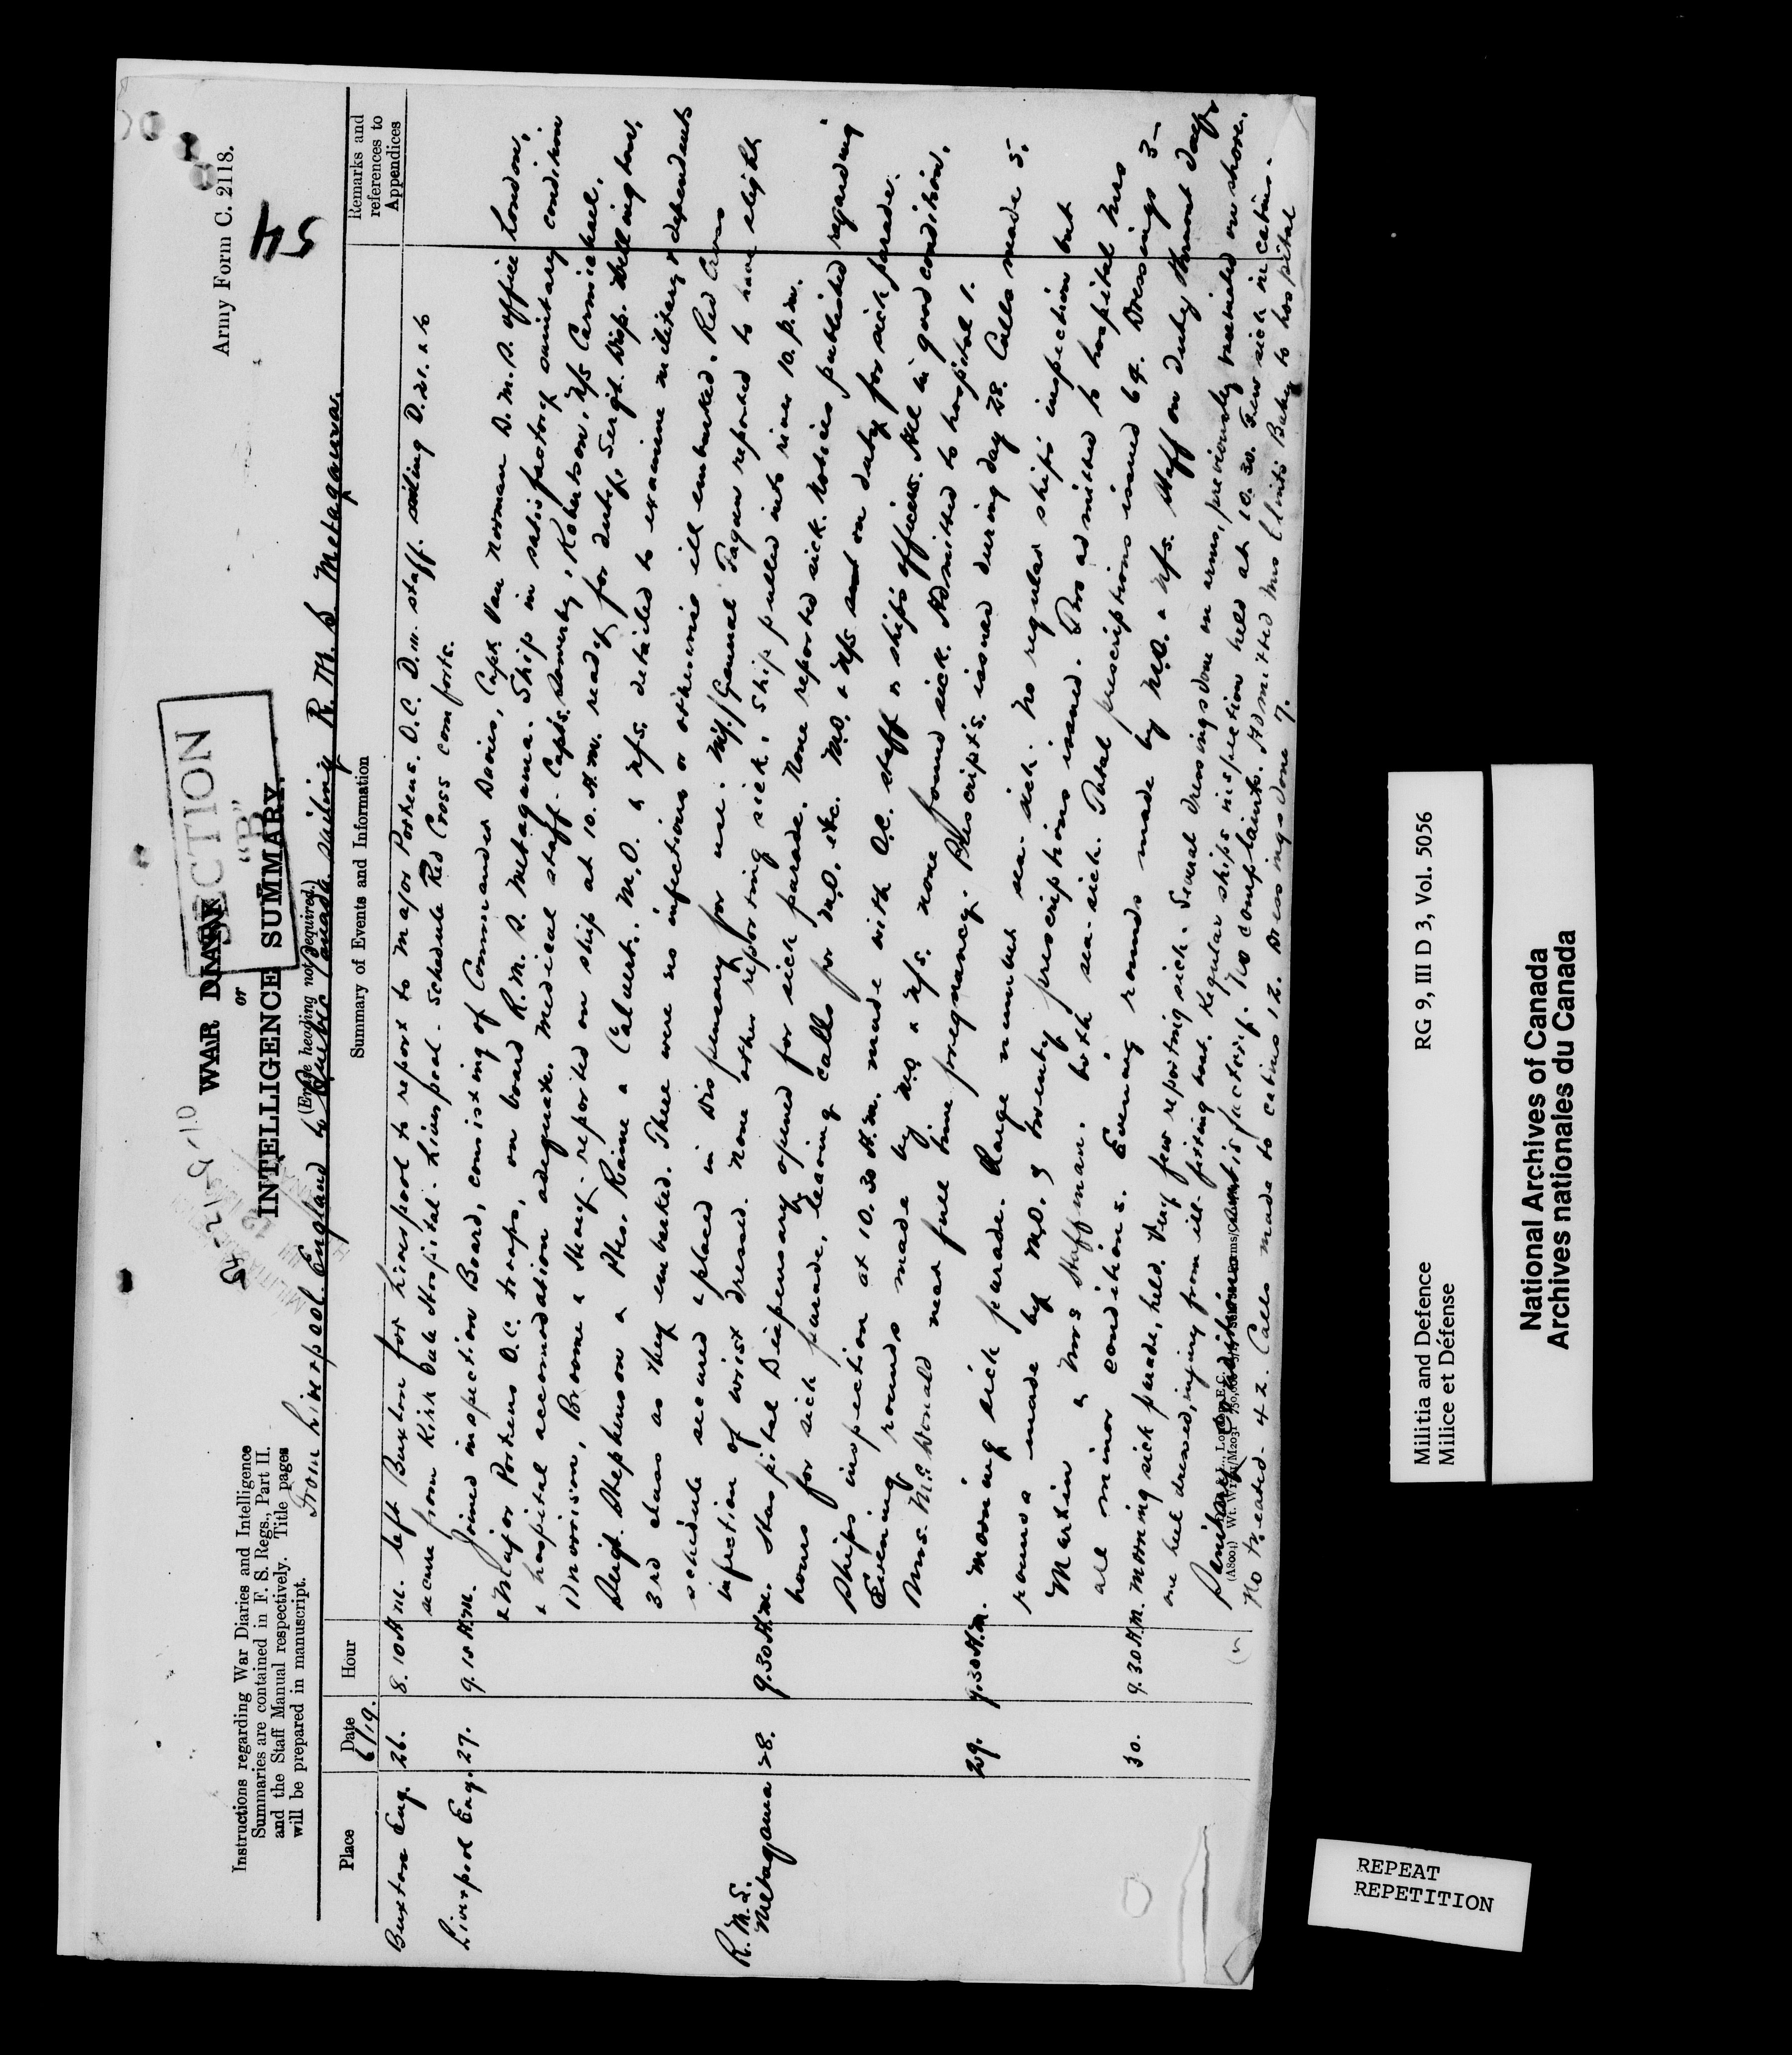 Army Form C. 2118.
54
SECTION
"B"
WAR DIARY
or
INTELLIGENCE SUMMARY.
(Erase heading not required.)
Instructions regarding War Diaries and Intelligence
Summaries are contained in F. S. Regs., Part II.
and the Staff Manual respectively. Title pages
will be prepared in manuscript.
From Liverpool England to Quebec Canada sailing R. M. S. Metagama.
Place
Date
6/19.
Hour
Summary of Events and Information
Remarks and
references to
Appendices
Buxton Eng. 26. 8.10 A m. Left Buxton for Liverpool to report to Major Porteus. O.C. D.M. staff. sailing D.21. & to
secure from Kirkdale Hospital - Liverpool - Schedule Red Cross comforts.
Liverpool Eng. 27. 9.15 A.M. Joined inspection Board, consisting of Commander Davies, Capt Van Norman D.M.S. office London,
& Major Porteus O.C. troops, on board R.M.S. Metagama. Ship in satisfactory sanitary condition
& hospital accomodation adequate. Medical staff - Capts. Sowerby, Robertson, N/s Carmichael,
Morrison, Broome & Sharp - reported on ship at 10. A.m. ready for duty. Sergt. Disp. Wellington,
Sergt. Stephenson & Ptes. Raine & Calvert. M.O. & N/s. detailed to examine military & dependents
3rd class as they embarked. There were no infectious or otherwise ill embarked. Red Cross
schedule secured & placed in Dispensary for use. M/General Fagan reported to have slight
infection of wrist dressed. None other reporting sick. Ship pulled into river 10. p.m.
R.M.S. Metagama 28. 9.30 A.m. Hospital Dispensary opened for sick parade. None reported sick. Notices published regarding
hours for sick parade, leaving calls for M.O. etc. M.O. & N/s on duty for sick parade.
Ships inspection at 10.30 A.m. made with O.C. staff & ship's officers. All in good condition.
Evening rounds made by M.O. & N/s. none found sick. Admitted to hospital 1.
Mrs. McDonald near full time pregnancy. Prescripts. issued during day 28. Calls made 5.
29. 9.30 A.m. Morning sick parade. Large number sea-sick. No regular ships inspection but
rounds made by M.O. & twenty prescriptions issued. Two admitted to hospital Mrs
Martin & Mrs Huffman. both sea-sick. Total prescriptions issued 64. Dressings 3 -
all minor conditions. Evening rounds made by M.O. & N/s. Staff on duty thruout day
30. 9.30 A.M. Morning sick parade, held. Very few reporting sick. Several dressings done on arms, previously vaccinated on shore.
one heel dressed, injury from ill-fitting boot. Regular ships inspection held at 10.30. Few sick in cabins.
Sanitary conditions satisfactory. No complaints. Admitted Mrs Clint's Baby to hospital
No treated - 42. Calls made to cabins, 12. Dressings done 7.
Militia and Defence
Milice et Défense
RG 9, III D 3, Vol. 5056
National Archives of Canada
Archives nationales du Canada
REPEAT
REPETITION